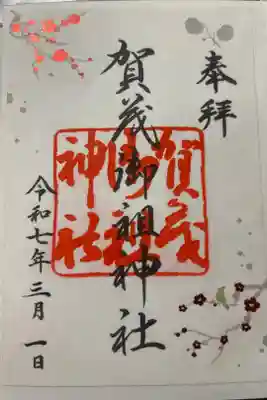 奉拝
賀茂御祖神社
賀茂
御祖
神社
令和七年三月一日